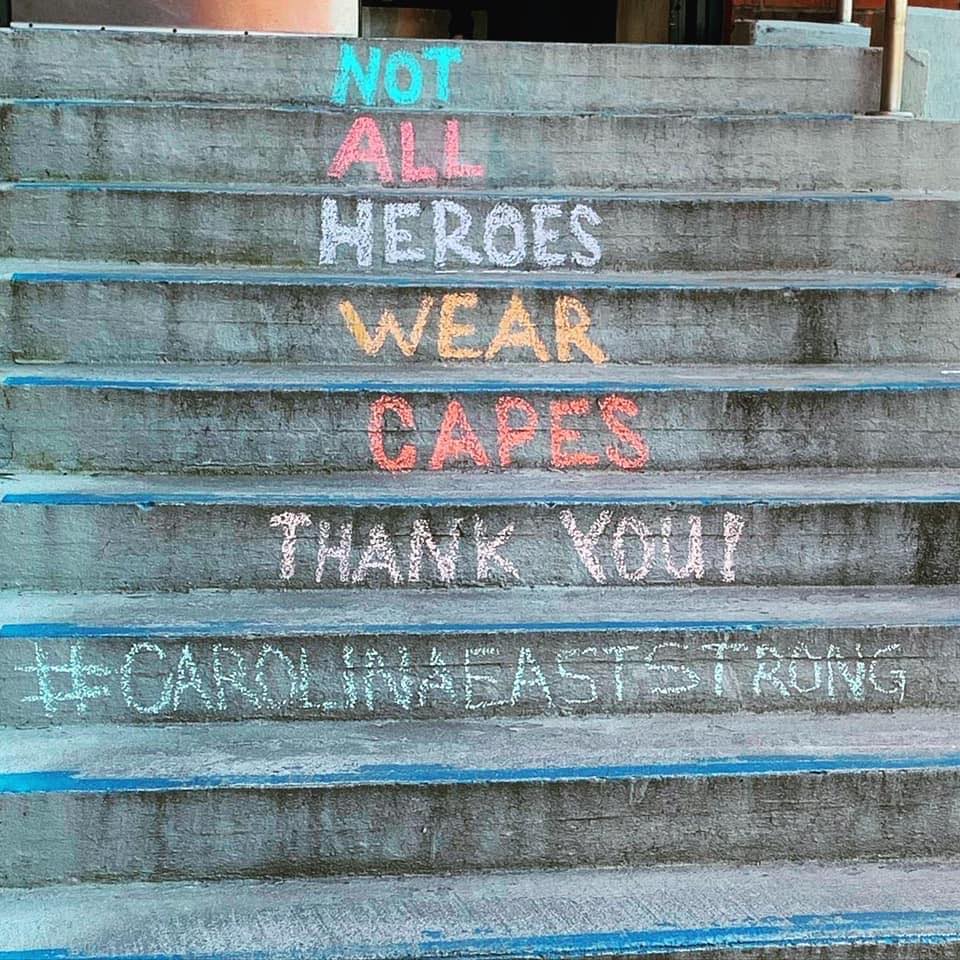 NOT
ALL
HEROES
WEAR
CAPES
THANK YOU!
#CAROLINAEASTSTRONG